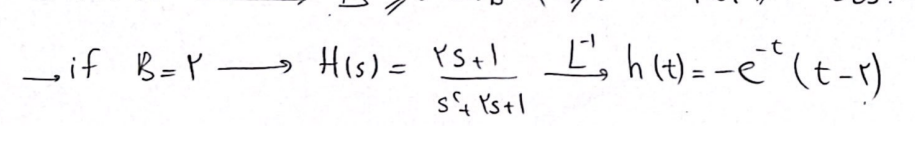 → if B=۲ → H(s) = (۲s+1)/(s²+۲s+1) L⁻¹→ h(t) = -e⁻ᵗ (t-۲)